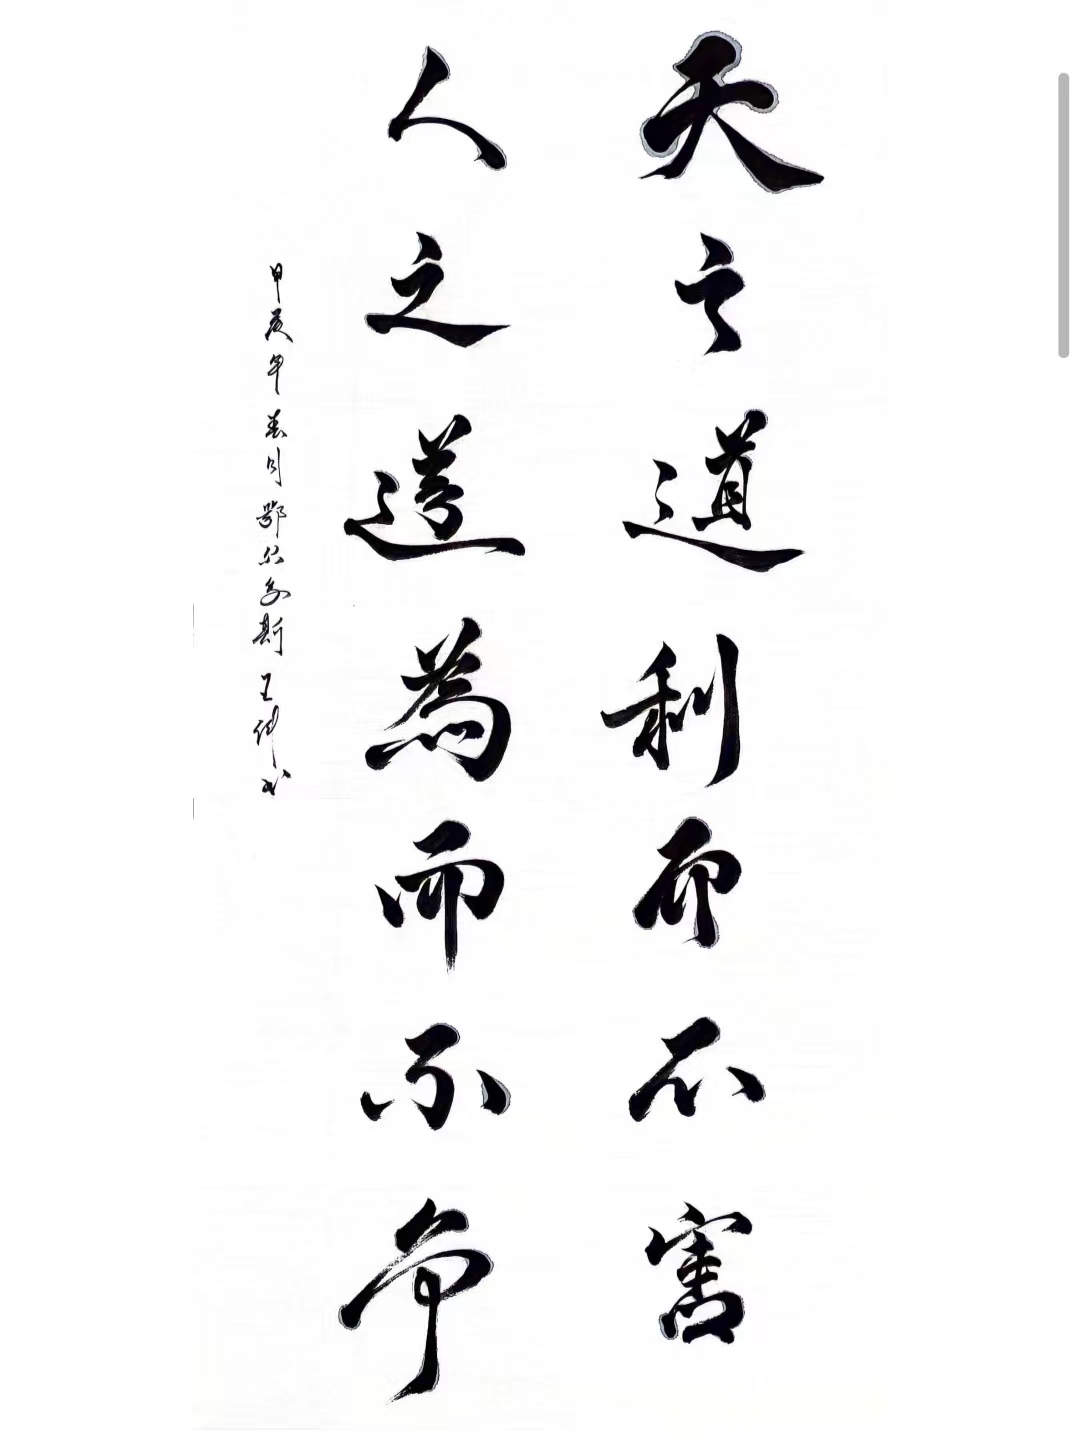 天之道利而不害
人之道為而不争
甲辰年春月鄂尔多斯王伟书